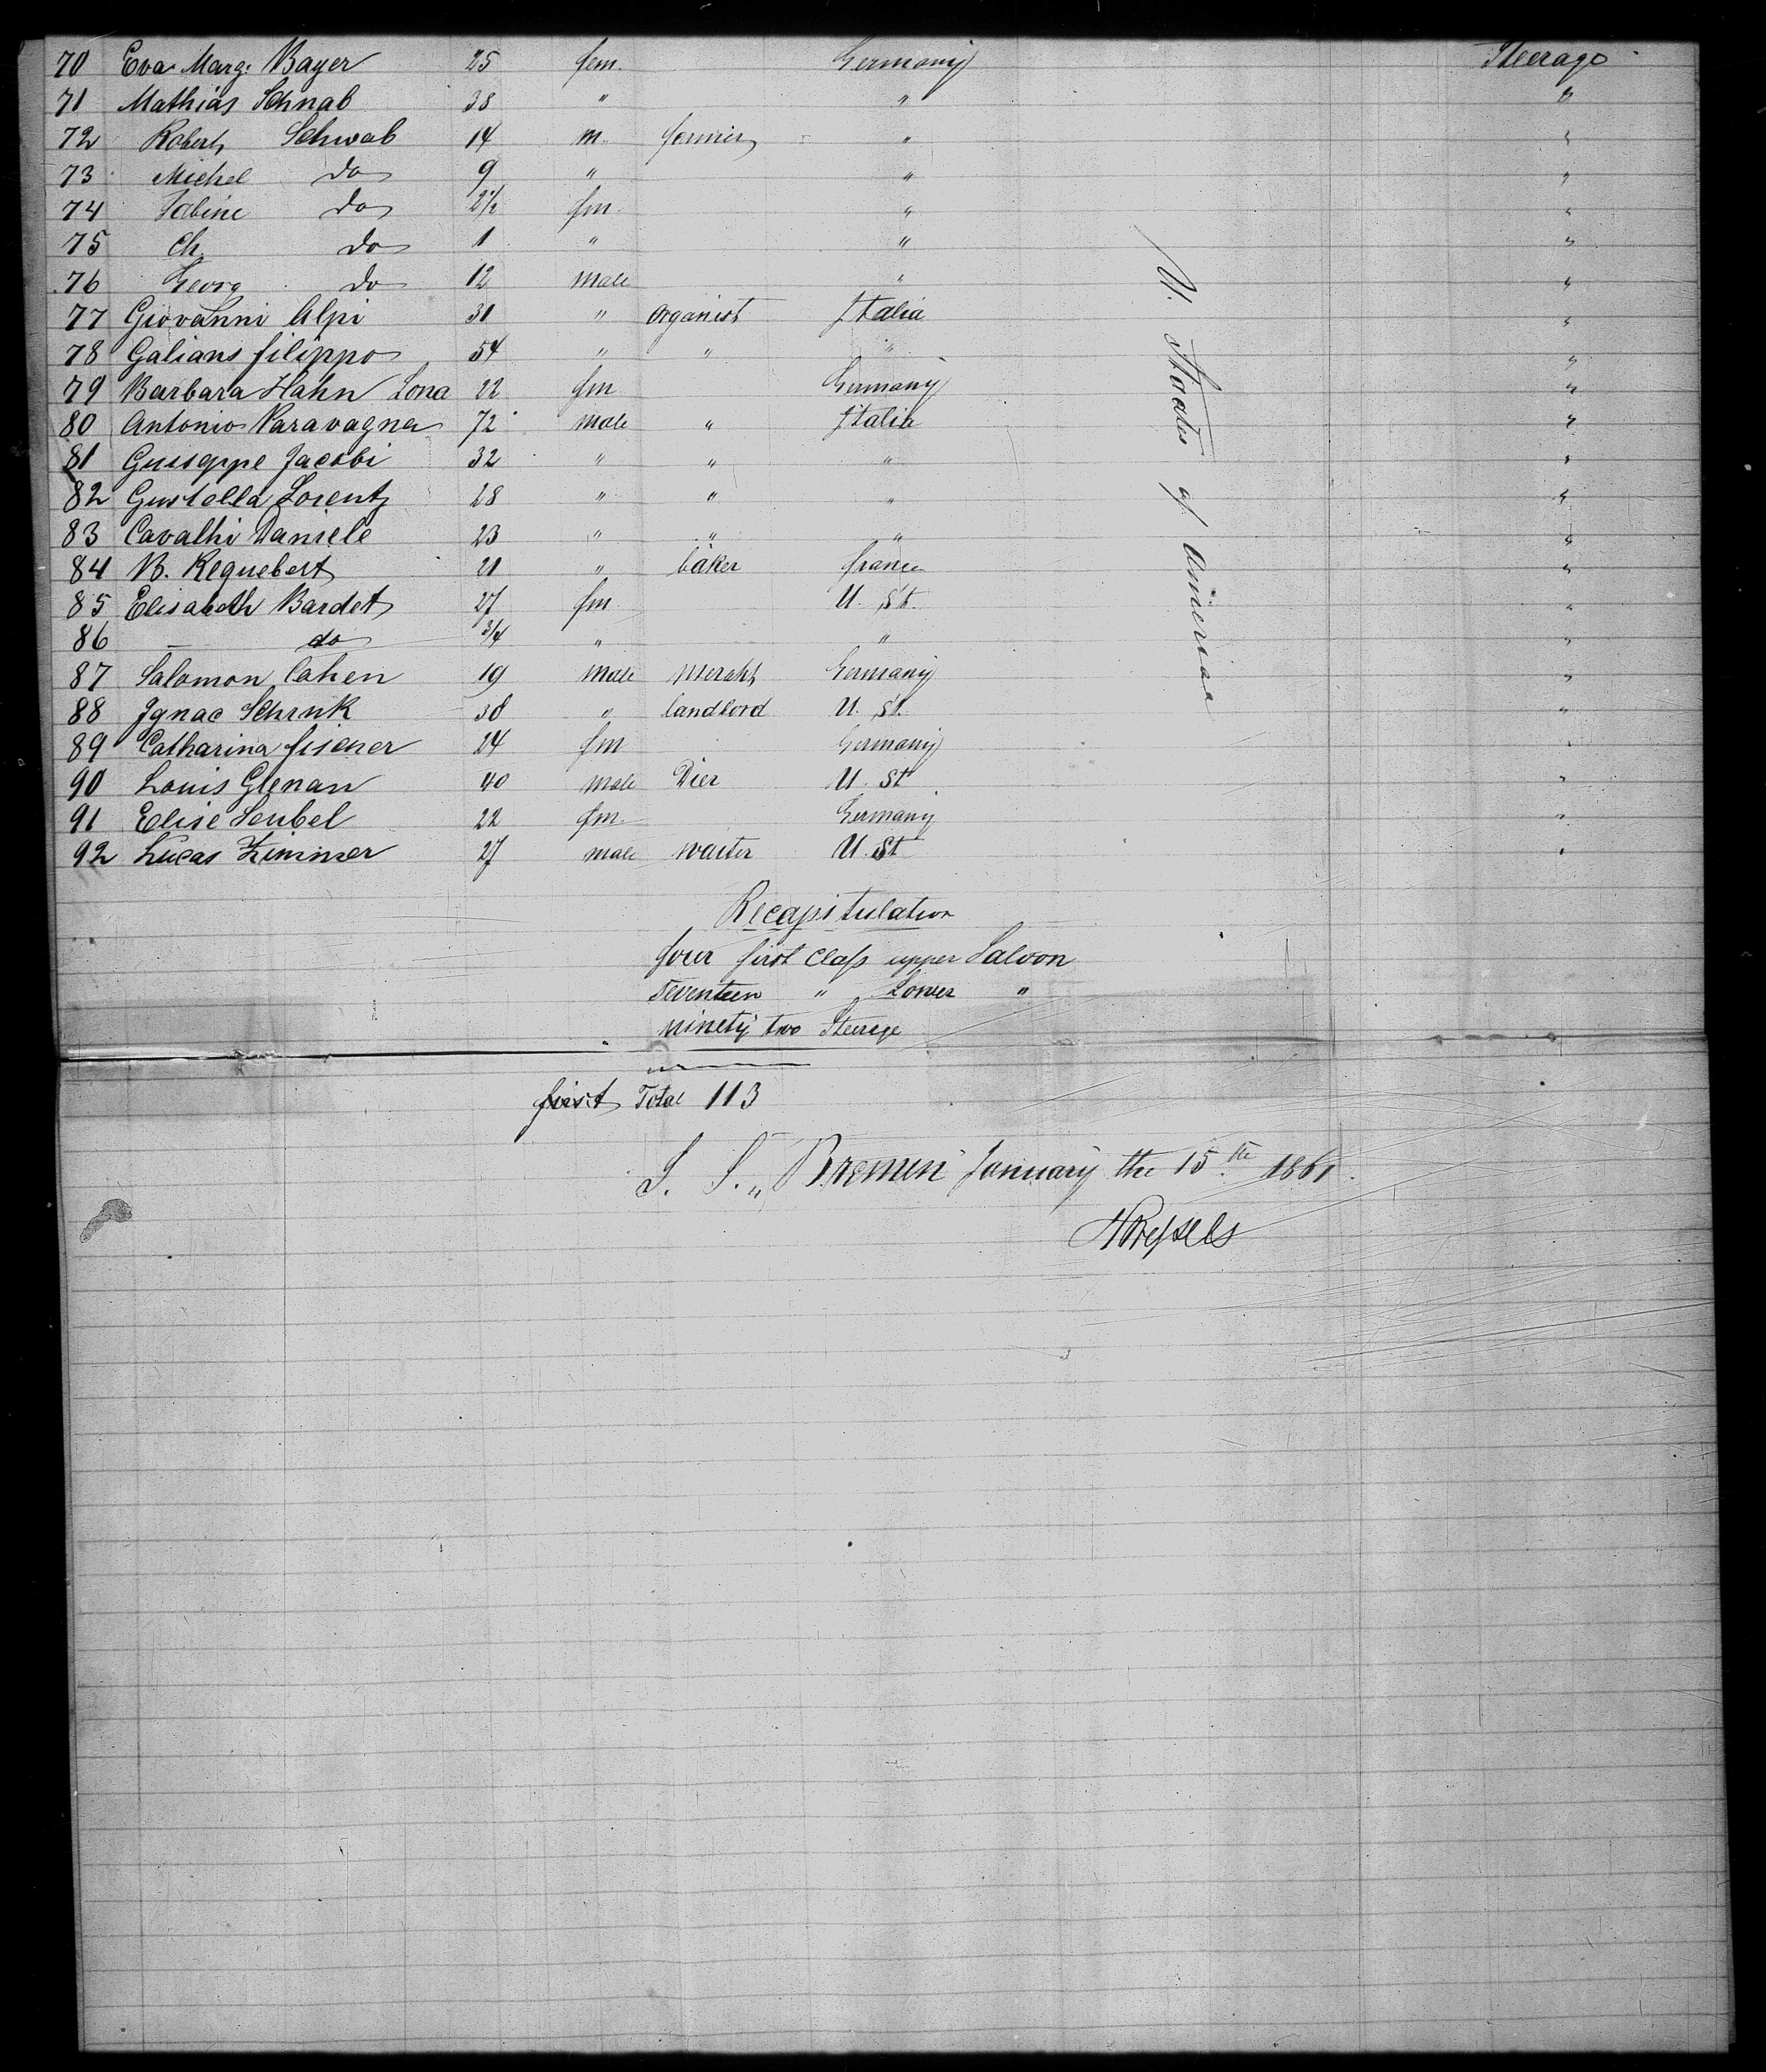 70 Eva Marg: Bayer 25 fem. Germany Steerage
71 Mathias Schnab 38 " " "
72 Robert Schwab 14 m. farmer " "
73 Michel do 9 " " "
74 Sabine do 2 1/2 fm. " "
75 Ch. do 1 " " "
76 Georg do 12 male " "
77 Giovanni Alpi 31 " organist Italia "
78 Galians filippo 54 " " " "
79 Barbara Hahn Lona 22 fm Germany "
80 Antonio Paravagna 72 male " Italia "
81 Guiseppe Jacobi 32 " " " "
82 Gustella Lorentz 28 " " " "
83 Cavalhi Daniele 23 " " " "
84 B. Requebert 21 " baker france "
85 Elisabeth Bardet 27 fm. U. St. "
86 — do 3/4 " " "
87 Salomon Cahen 19 male Meraht Germany "
88 Ignac Schenk 38 " landlord U. St. "
89 Catharina fisener 24 fm Germany "
90 Louis Glenan 40 male Dier U. St "
91 Elise Leubel 22 fm. Germany "
92 Lucas Zimmer 27 male waiter U. St "
U. Staates of America
Recapitulation
four first Class upper Saloon
seventeen " Lower "
ninety two Steerage
first Total 113
S. S. „Bremen" January the 15th 1861.
HWessels